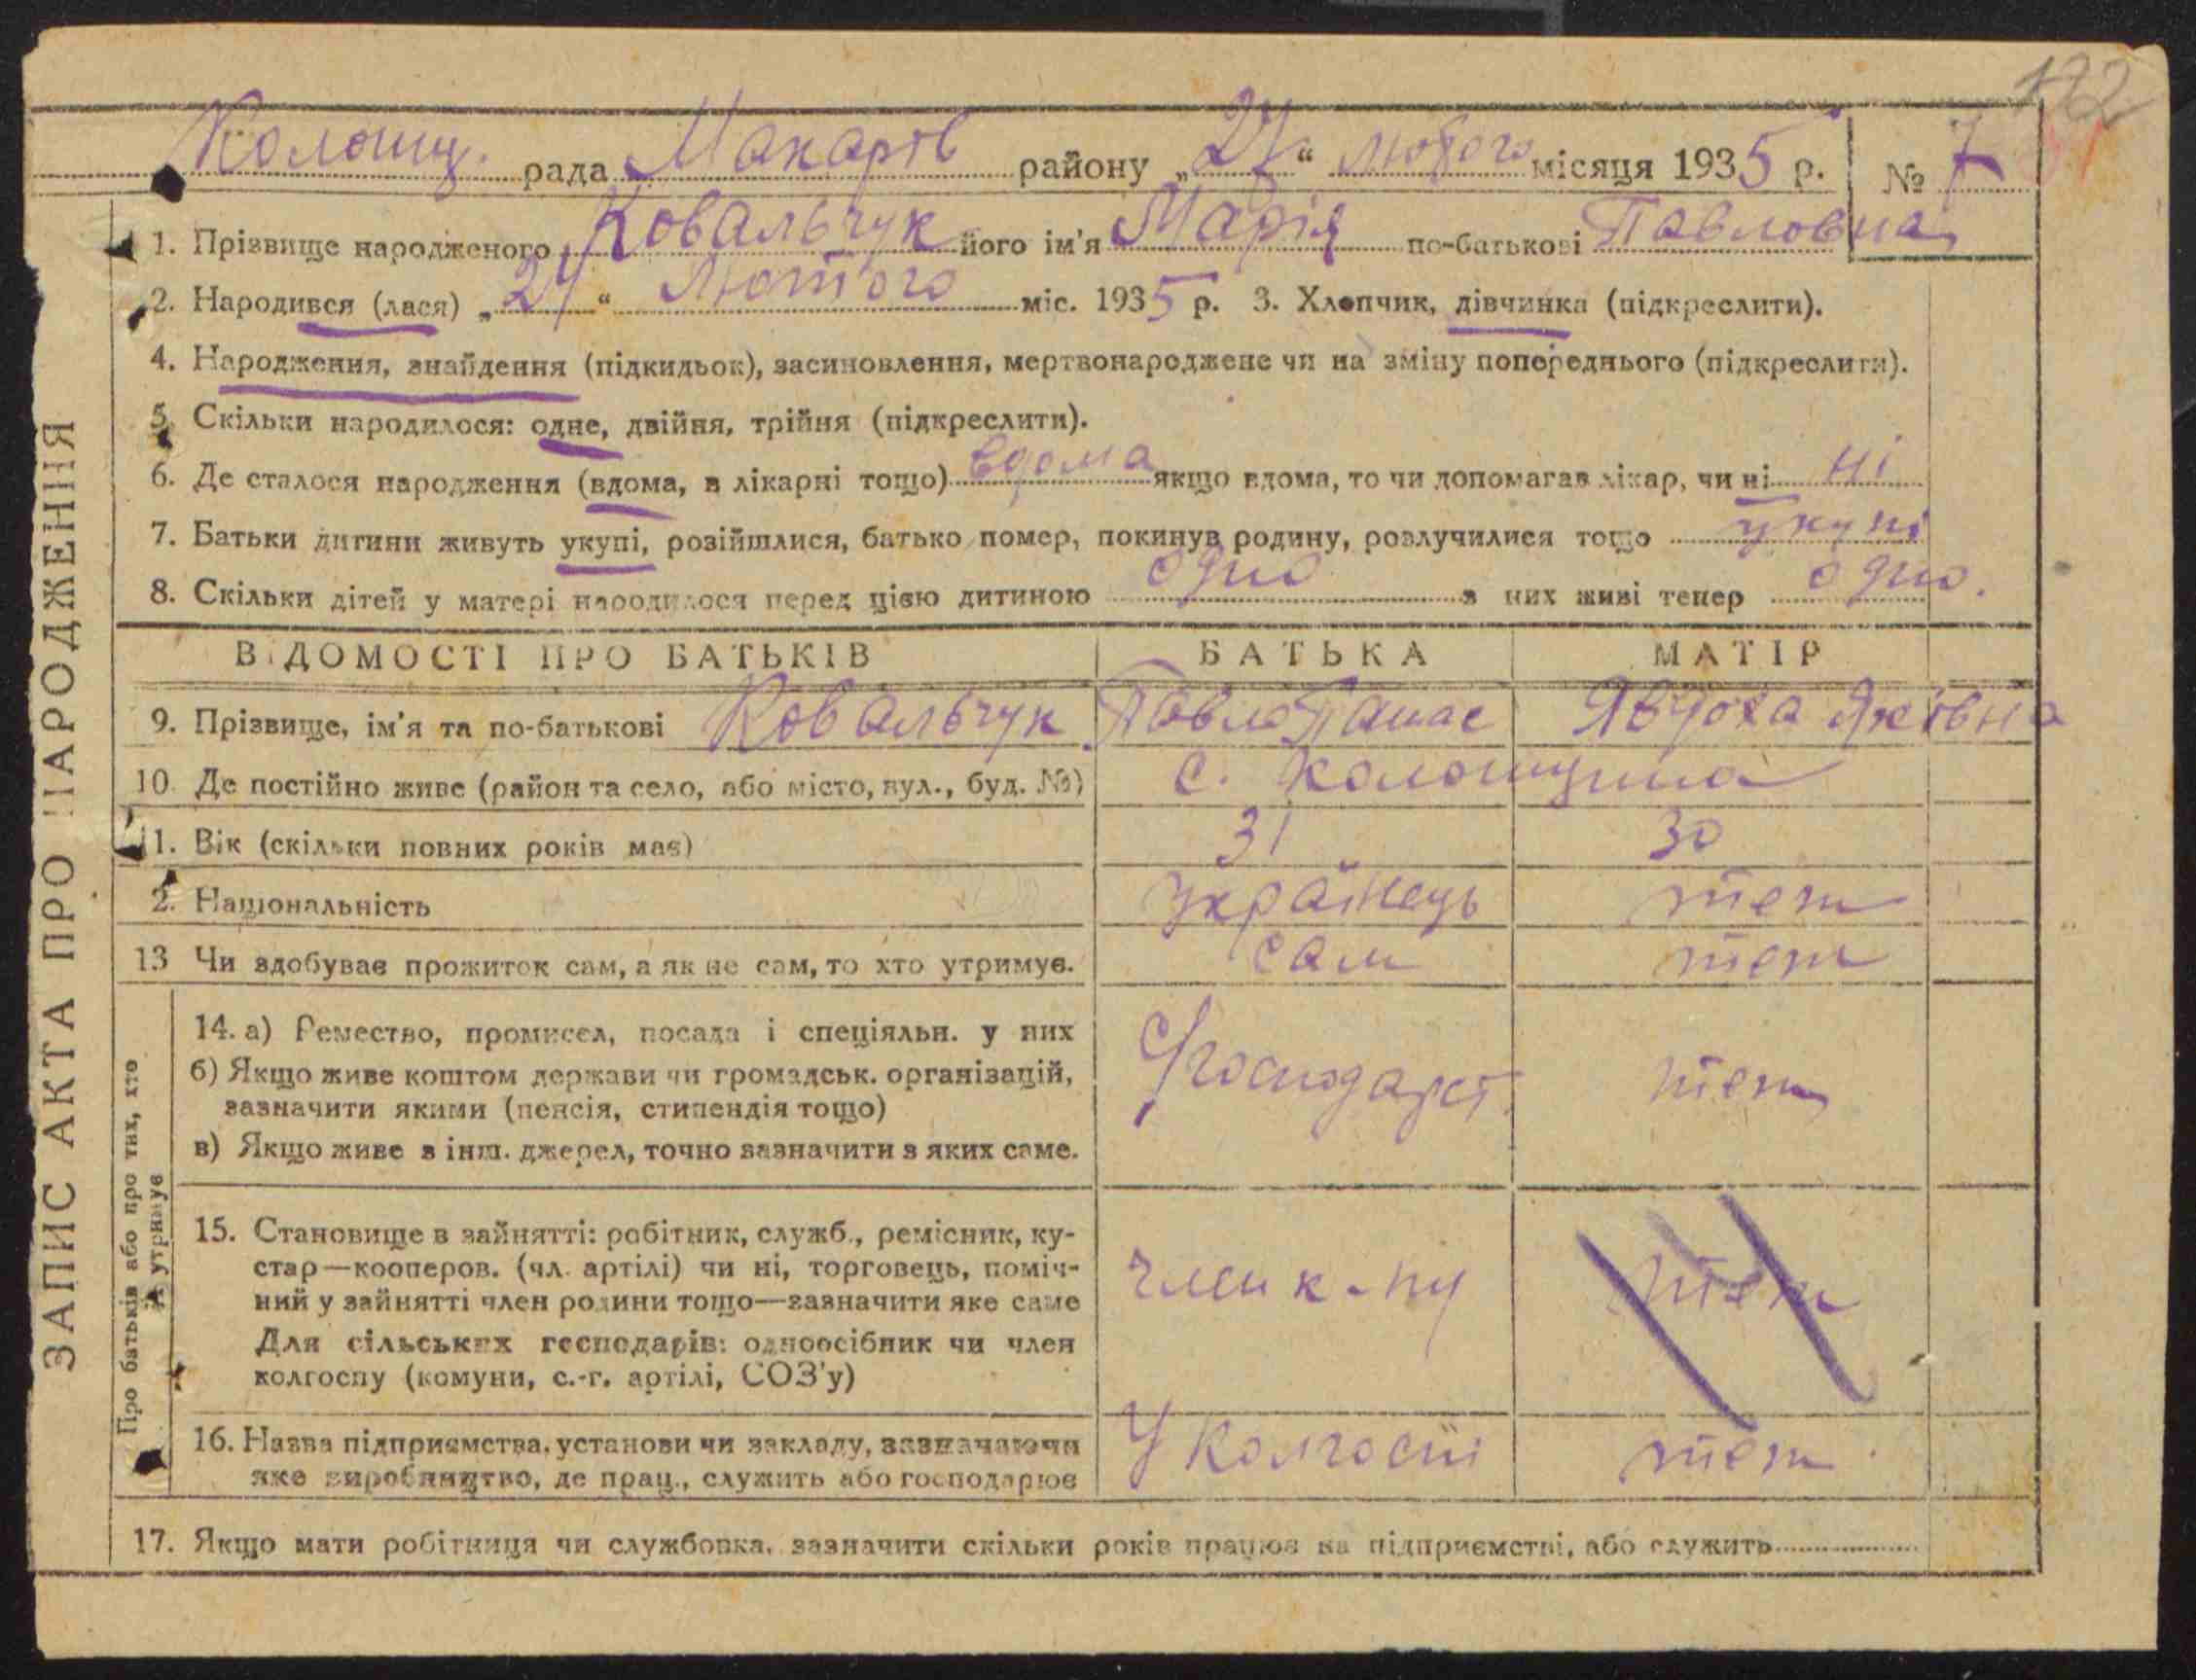 122
Колонщ. рада Макарів району „27“ лютого місяця 1935 р. № 7
1. Прізвище народженого Ковальчук його ім'я Марія по-батькові Павловна
2. Народився (лася) „24“ Лютого міс. 1935 р. 3. Хлопчик, дівчинка (підкреслити).
4. Народження, знайдення (підкидьок), засиновлення, мертвонароджене чи на зміну попереднього (підкреслити).
5. Скільки народилося: одне, двійня, трійня (підкреслити).
6. Де сталося народження (вдома, в лікарні тощо) вдома якщо вдома, то чи допомагав лікар, чи ні ні
7. Батьки дитини живуть укупі, розійшлися, батько помер, покинув родину, розлучилися тощо укупі
8. Скільки дітей у матері народилося перед цією дитиною одно з них живі тепер одно.
ВІДОМОСТІ ПРО БАТЬКІВ БАТЬКА МАТІР
9. Прізвище, ім'я та по-батькові Ковальчук Павло Панас Явдоха Яківна
10. Де постійно живе (район та село, або місто, вул., буд. №) с. Колонщина
11. Вік (скільки повних років має) 31 30
2. Національність Українець теж
13 Чи здобуває прожиток сам, а як не сам, то хто утримує. сам теж
14. а) Ремество, промисел, посада і спеціяльн. у них
б) Якщо живе коштом держави чи громадськ. організацій,
зазначити якими (пенсія, стипендія тощо)
в) Якщо живе з інш. джерел, точно зазначити з яких саме.
С/господарст. теж
15. Становище в зайнятті: робітник, служб., ремісник, ку-
стар—кооперов. (чл. артілі) чи ні, торговець, поміч-
ний у зайнятті член родини тощо—зазначити яке саме
Для сільських господарів: одноосібник чи член
колгоспу (комуни, с.-г. артілі, СОЗ'у)
член к-пу теж
16. Назва підприємства, установи чи закладу, зазначаючи
яке виробництво, де прац., служить або господарює
У Колгоспі теж
17. Якщо мати робітниця чи службовка, зазначити скільки років працює на підприємстві, або служить
ЗАПИС АКТА ПРО НАРОДЖЕННЯ
Про батьків або про тих, хто
їх утримує